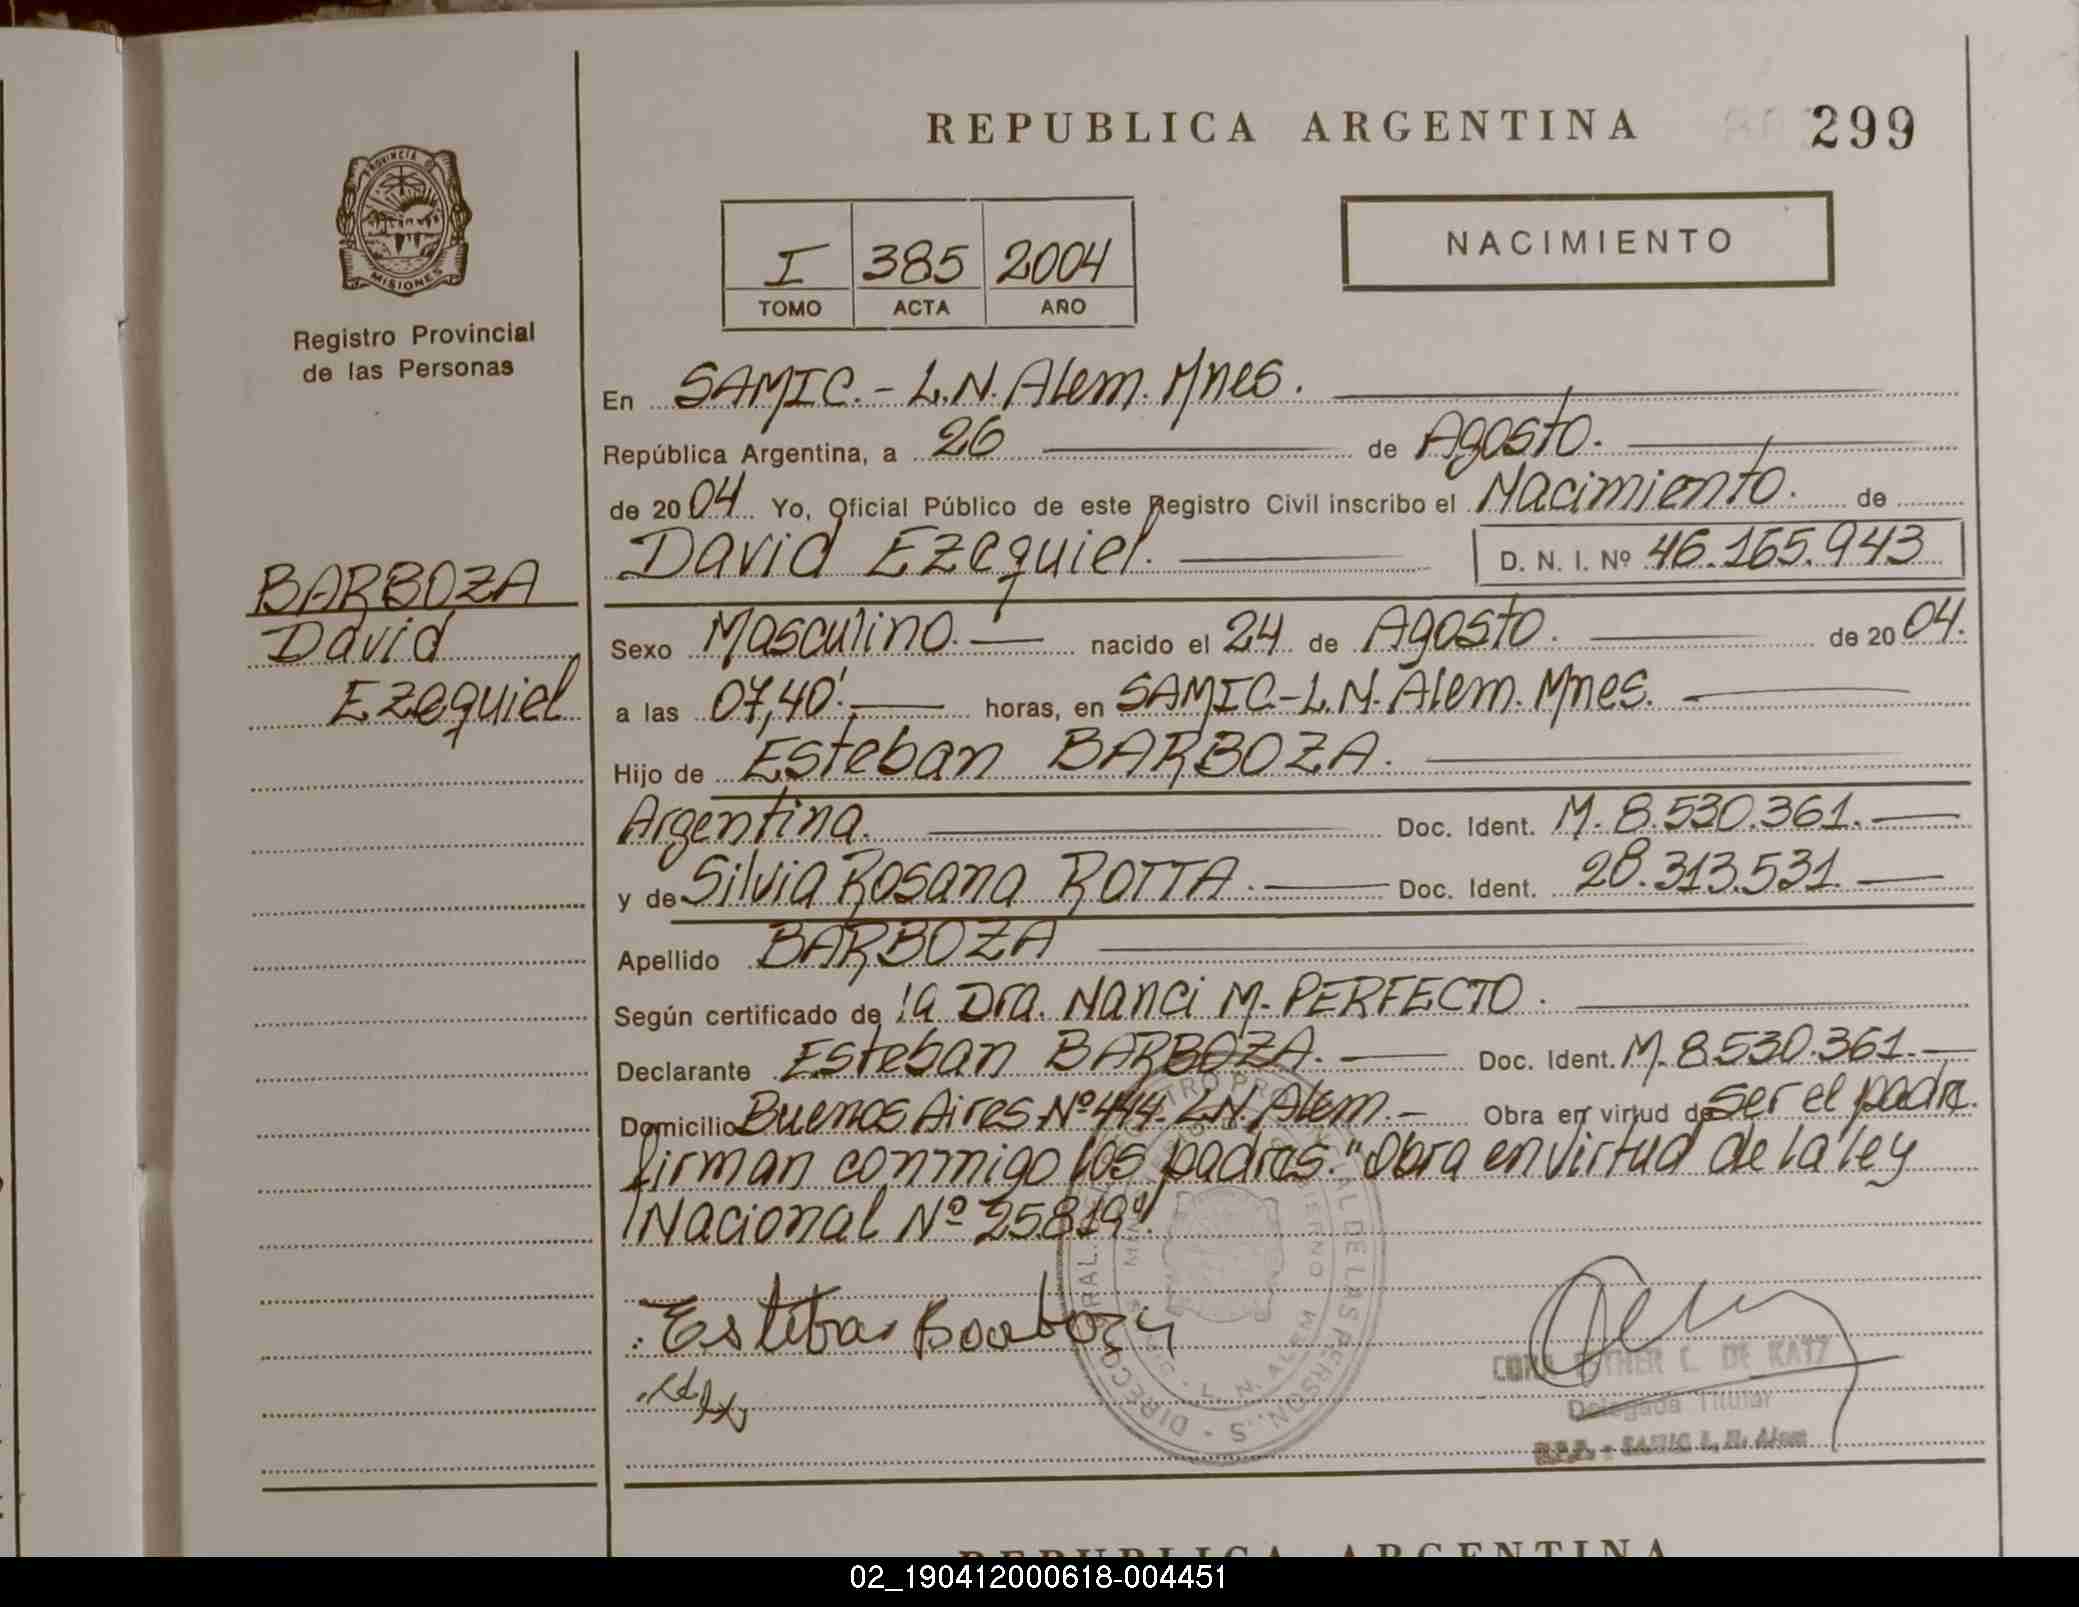 REPUBLICA ARGENTINA
299
PROVINCIA DE
MISIONES
Registro Provincial
de las Personas
I 385 2004
TOMO ACTA AÑO
NACIMIENTO
En SAMIC.- L.N. Alem. Mnes.
República Argentina, a 26 de Agosto.
de 2004 Yo, Oficial Público de este Registro Civil inscribo el Nacimiento. de
David Ezequiel. D. N. I. Nº 46.165.943
BARBOZA
David
Ezequiel
Sexo Masculino. nacido el 24 de Agosto. de 2004.
a las 07,40'. horas, en SAMIC-L.N. Alem. Mnes.
Hijo de Esteban BARBOZA.
Argentina. Doc. Ident. M. 8.530.361.
y de Silvia Rosana ROTTA. Doc. Ident. 28.313.531.
Apellido BARBOZA
Según certificado de la Dra. Nanci M. PERFECTO.
Declarante Esteban BARBOZA. Doc. Ident. M. 8.530.361.
Domicilio Buenos Aires Nº 444. L.N. Alem. Obra en virtud de ser el padre.
firman conmigo los padres. "Obra en virtud de la ley
Nacional Nº 25.819".
Esteban Barboza
L. N. ALEM
ESTHER C. DE KATZ
Delegada Titular
R.P.P. - SAMIC L. N. Alem
REPUBLICA ARGENTINA
02_190412000618-004451